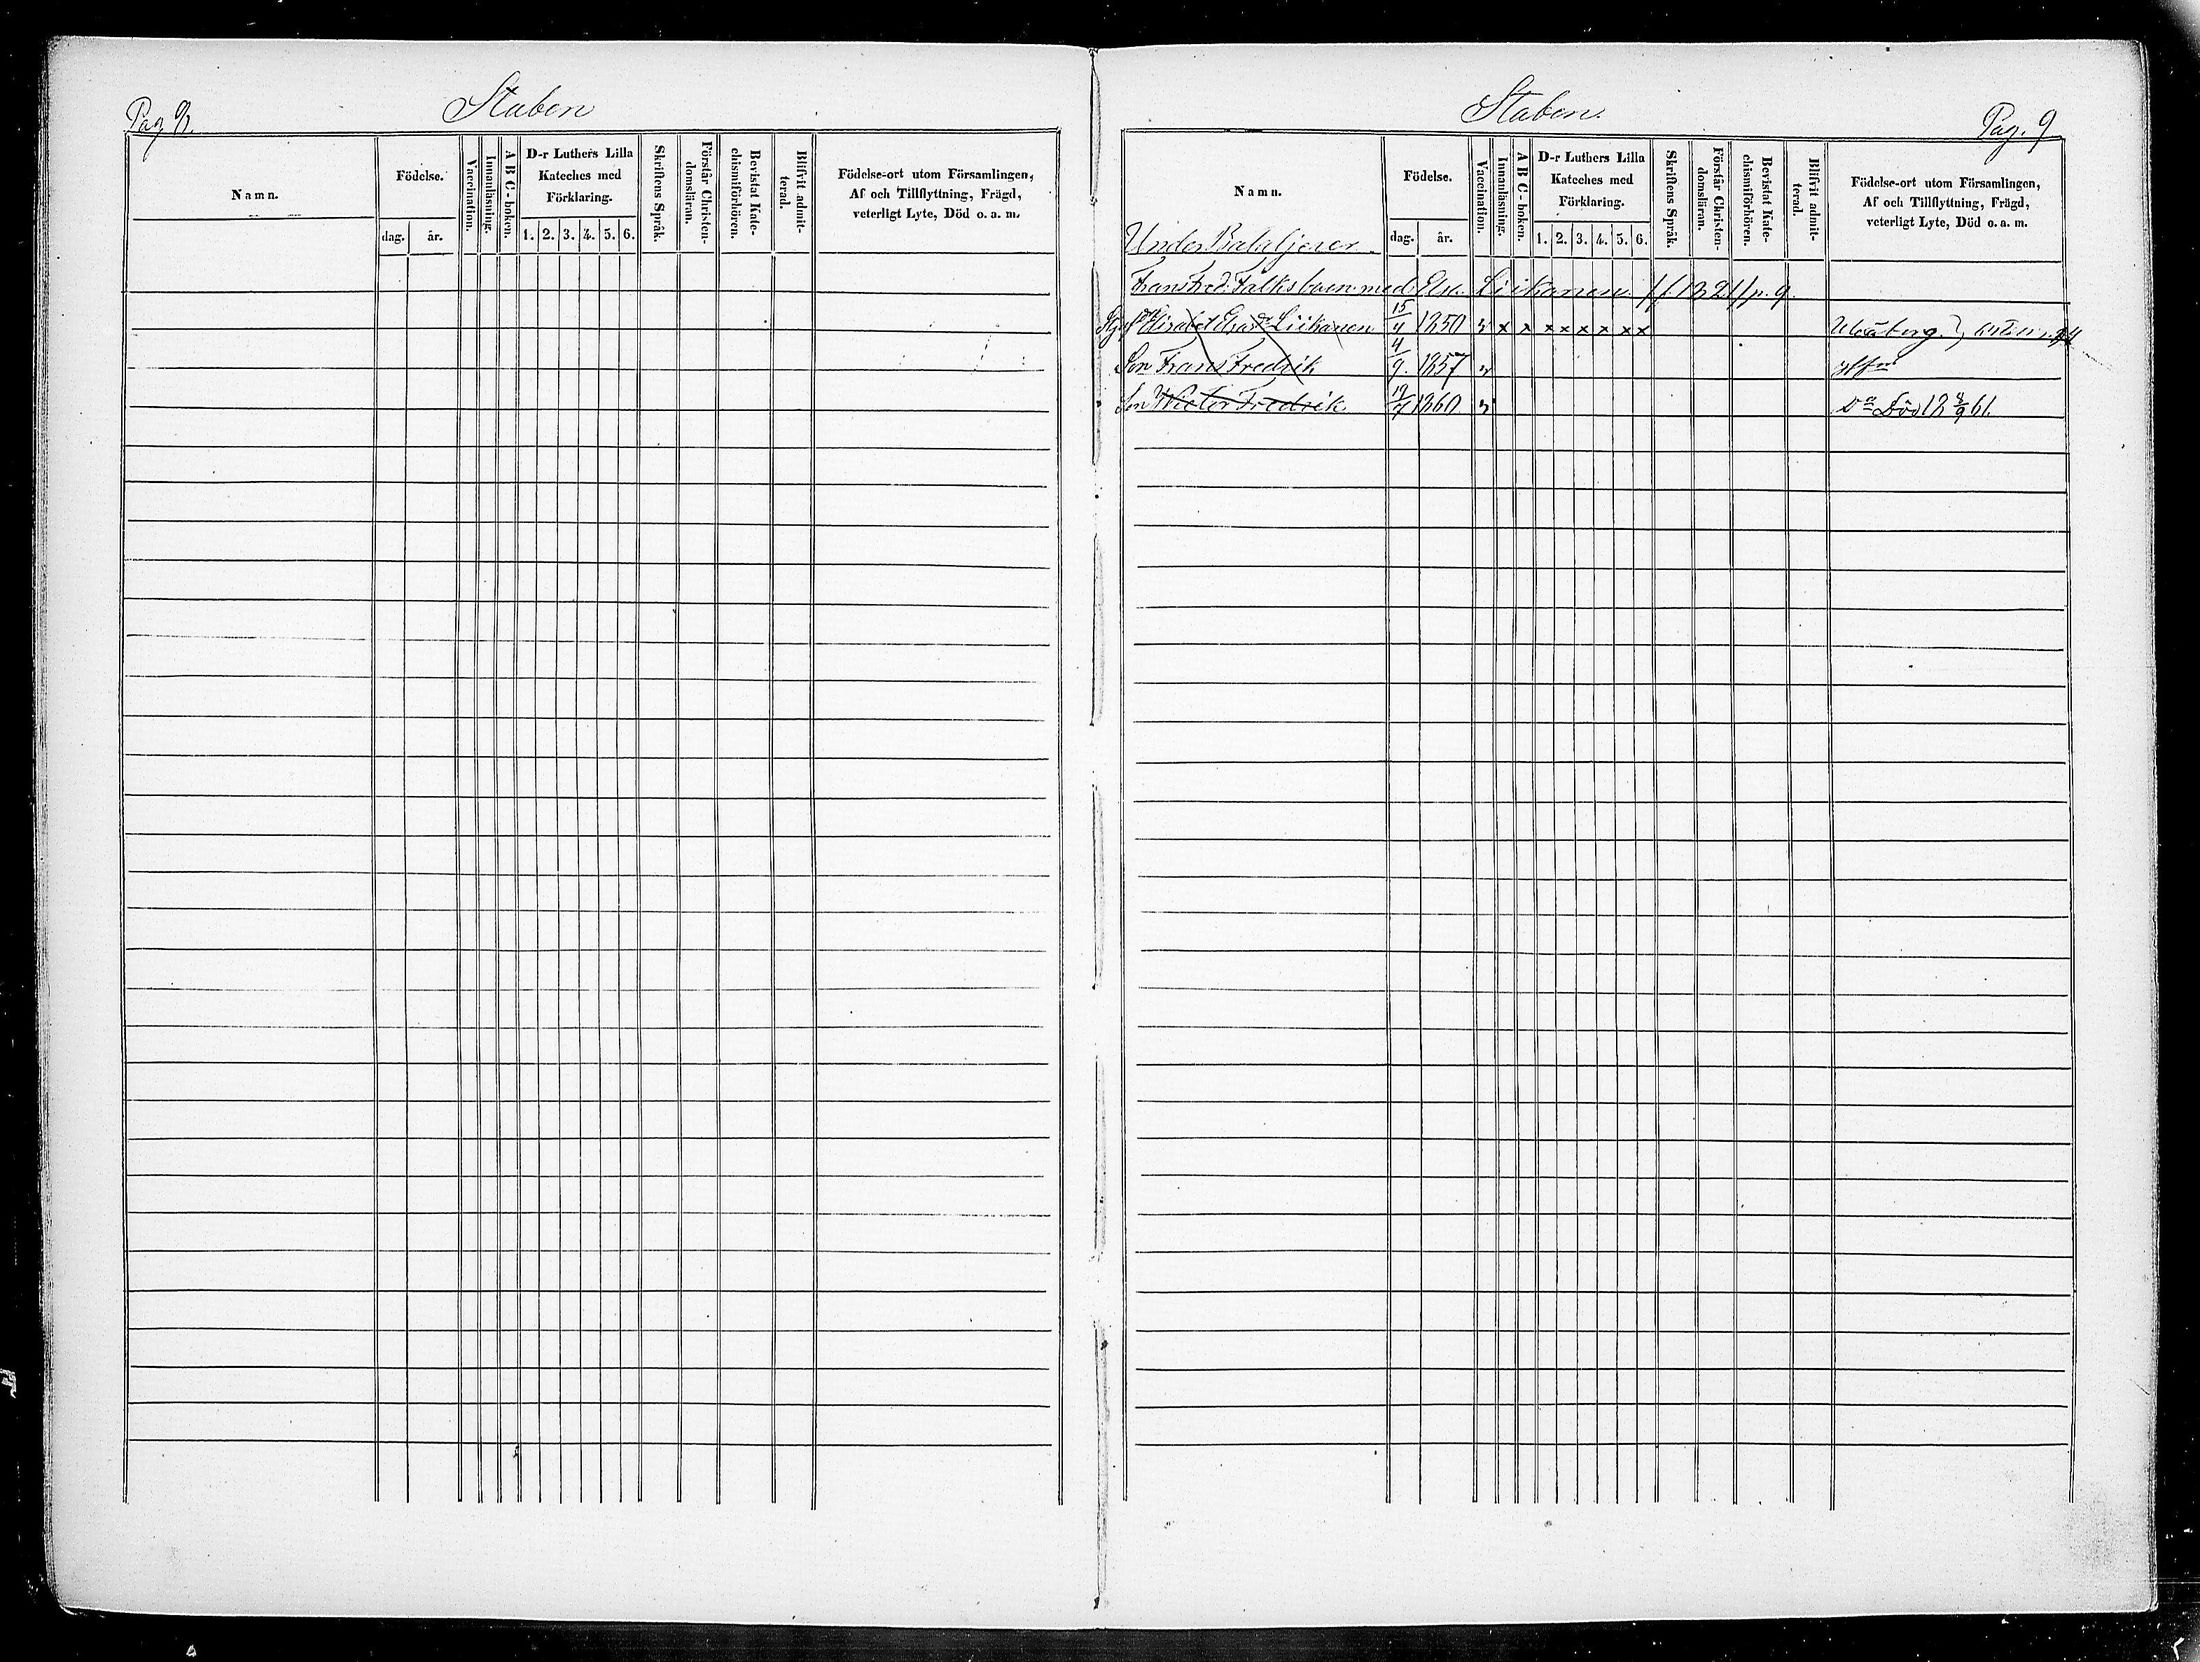 Pag 8.
Staben
Namn.
Födelse.
dag. år.
Vaccination.
Innanläsning.
ABC-boken.
D-r Luthers Lilla
Kateches med
Förklaring.
1. 2. 3. 4. 5. 6.
Skriftens Språk.
Förstår Christen-
domsläran.
Bevistat Kate-
chismiförhören.
Blifvit admit-
terad.
Födelse-ort utom Församlingen,
Af och Tillflyttning, Frägd,
veterligt Lyte, Död o. a. m.
Staben.
Pag. 9
Namn.
Födelse.
dag. år.
Vaccination.
Innanläsning.
ABC-boken.
D-r Luthers Lilla
Kateches med
Förklaring.
1. 2. 3. 4. 5. 6.
Skriftens Språk.
Förstår Christen-
domsläran.
Bevistat Kate-
chismiförhören.
Blifvit admit-
terad.
Födelse-ort utom Församlingen,
Af och Tillflyttning, Frägd,
veterligt Lyte, Död o. a. m.
Under Bataljoner.
Frans Fred. Falks barn med Els. Liikanen p. 9.
Elisabet Liikanen 15/4 1850 v x x x x x x x x Uleåborg.
Son Frans Fredrik 4/9. 1857 v
Son Victor Fredrik 1860 v Do Död 18 8/9 61.